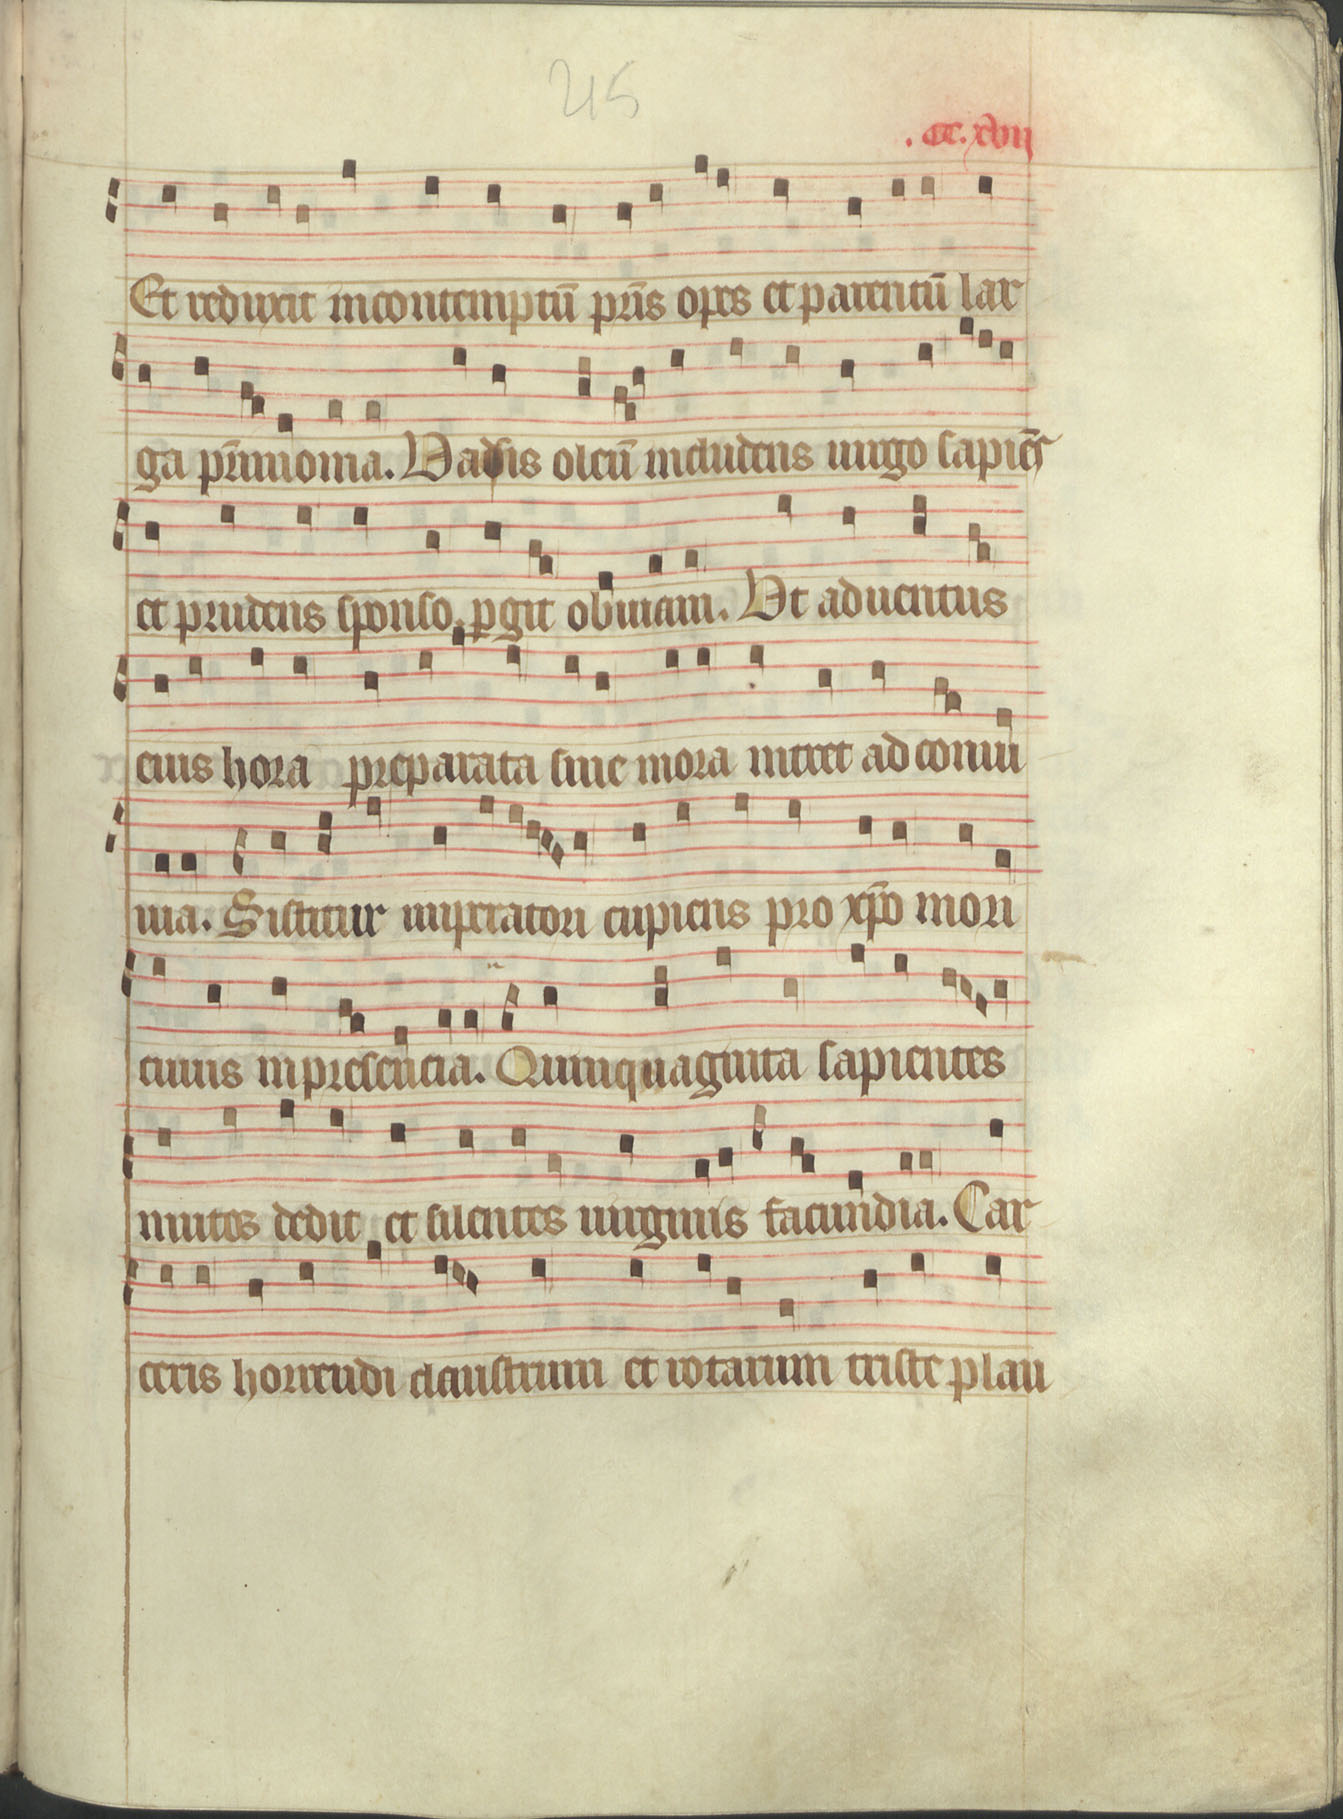 215
. CC. xvii
Et reduxit in contemptū pr̄is opes et parentū lar
ga pr̄imonia. Vasis oleū includens uirgo sapiēs
et prudens sponso pgit obuiam. Vt aduentus
eius hora preparata sine mora intret ad conui
uia. Sistitur imperatori cupiens pro xp̄o mori
cuius in presencia. Quinquaginta sapientes
mutos dedit et silentes uirginis facundia. Car
ceris horrendi claustrum et rotarum triste plau